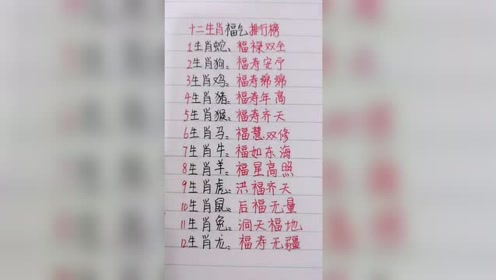 十二生肖福气排行榜
1生肖蛇：福禄双全
2生肖狗：福寿安宁
3生肖鸡：福寿绵绵
4生肖猪：福寿年高
5生肖猴：福寿齐天
6生肖马：福慧双修
7生肖牛：福如东海
8生肖羊：福星高照
9生肖虎：洪福齐天
10生肖鼠：后福无量
11生肖兔：洞天福地
12生肖龙：福寿无疆